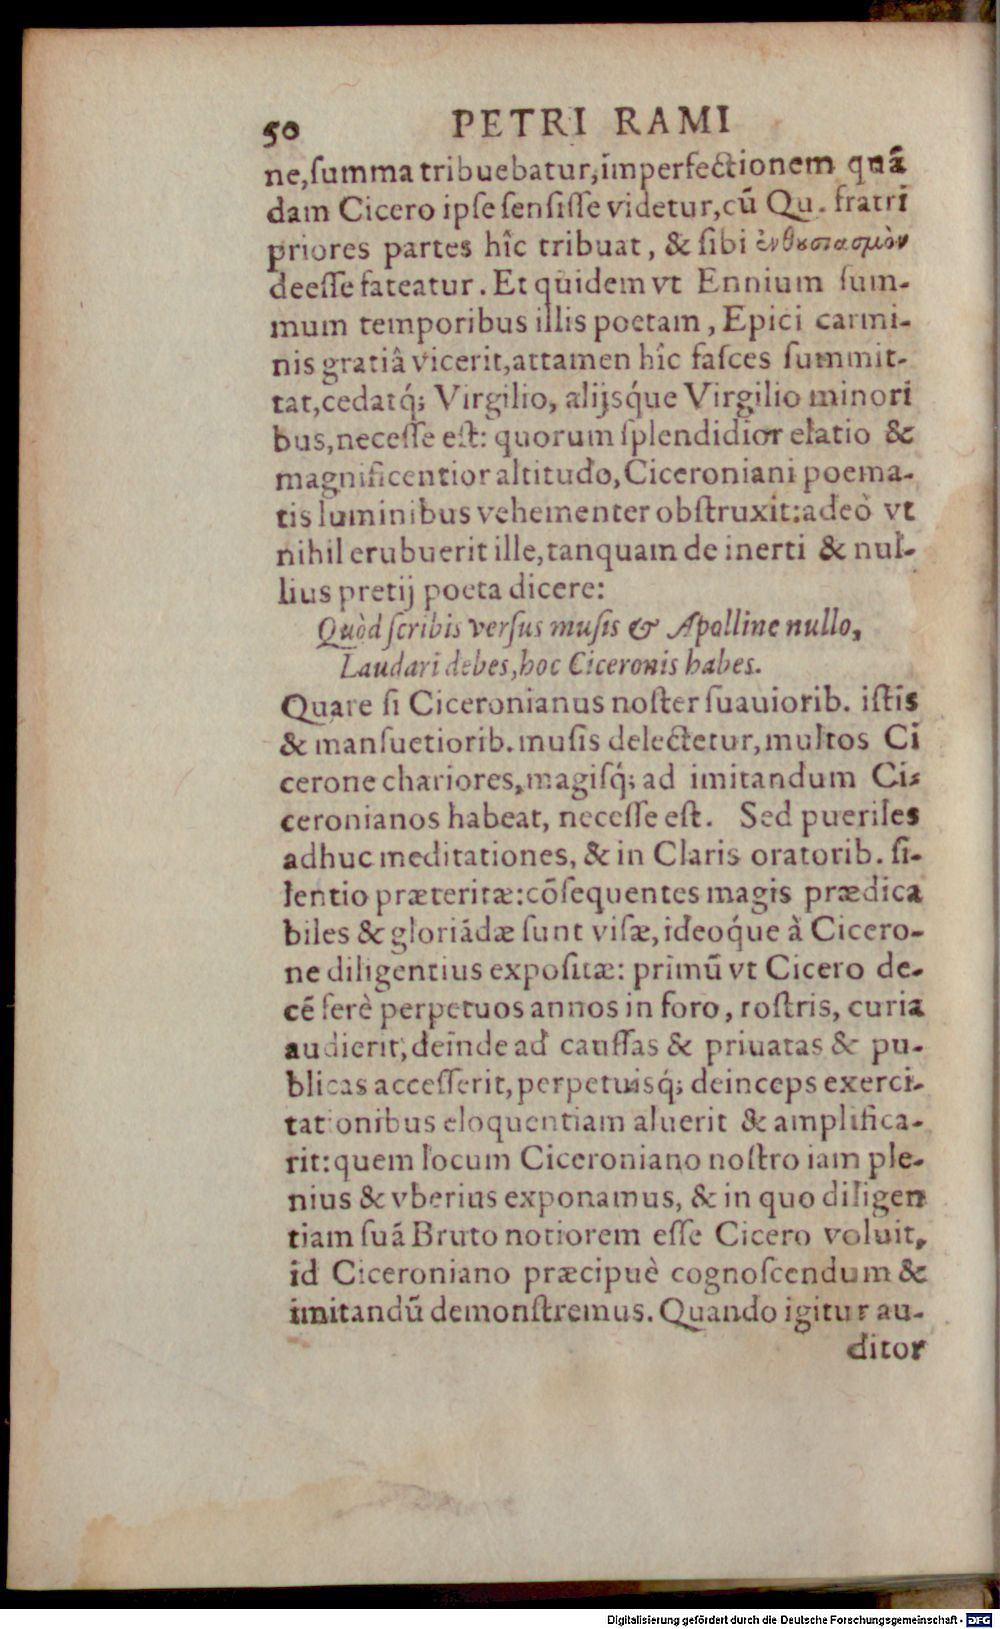 50 PETRI RAMI
ne,ſumma tribuebatur,imperfectionem quā
dam Cicero ipſe ſenſiſſe videtur,cū Qu. fratri
priores partes hîc tribuat, & ſibi ἐνθȣσιασμὸν
deeſſe fateatur. Et quidem vt Ennium ſum-
mum temporibus illis poetam, Epici carmi-
nis gratiâ vicerit,attamen hîc faſces ſummit-
tat,cedatq́; Virgilio, alijsq́ue Virgilio minori
bus,neceſſe eſt: quorum ſplendidior elatio &
magnificentior altitudo, Ciceroniani poema-
tis luminibus vehementer obſtruxit:adeò vt
nihil erubuerit ille,tanquam de inerti & nul-
lius pretij poeta dicere:
Quòd ſcribis verſus muſis & Apolline nullo,
Laudari debes,hoc Ciceronis habes.
Quare ſi Ciceronianus noſter ſuauiorib. iſtis
& manſuetiorib. muſis delectetur, multos Ci
cerone chariores, magiſq́; ad imitandum Ci-
ceronianos habeat, neceſſe eſt. Sed pueriles
adhuc meditationes, & in Claris oratorib. ſi-
lentio præteritæ:cōſequentes magis prædica
biles & gloriādæ ſunt viſæ, ideoq́ue à Cicero-
ne diligentius expoſitæ: primū vt Cicero de-
cē ferè perpetuos annos in foro, roſtris, curia
audierit, deinde ad cauſſas & priuatas & pu-
blicas acceſſerit, perpetuisq́; deinceps exerci-
tationibus eloquentiam aluerit & amplifica-
rit: quem locum Ciceroniano noſtro iam ple-
nius & vberius exponamus, & in quo diligen
tiam ſuā Bruto notiorem eſſe Cicero voluit,
id Ciceroniano præcipuè cognoſcendum &
imitandū demonſtremus. Quando igitur au-
ditor
Digitalisierung gefördert durch die Deutsche Forschungsgemeinschaft - DFG